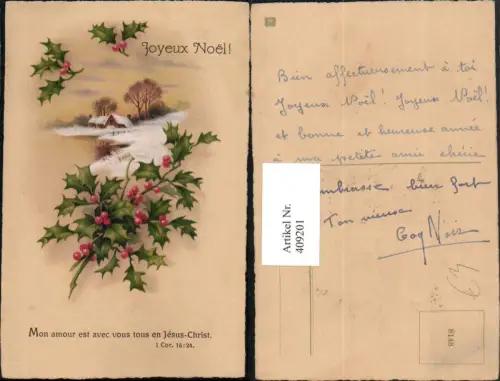 Joyeux Noël!
Mon amour est avec vous tous en Jésus-Christ.
1 Cor. 16:24.
Bien affectueusement à toi
Joyeux Noël! Joyeux Noël!
et bonne et heureuse année
à ma petite amie chérie
embrasse bien fort
Ton vieux
Coq Noir
Artikel Nr.
409201
8148